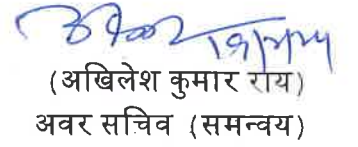 (अखिलेश कुमार राय)
अवर सचिव (समन्वय)